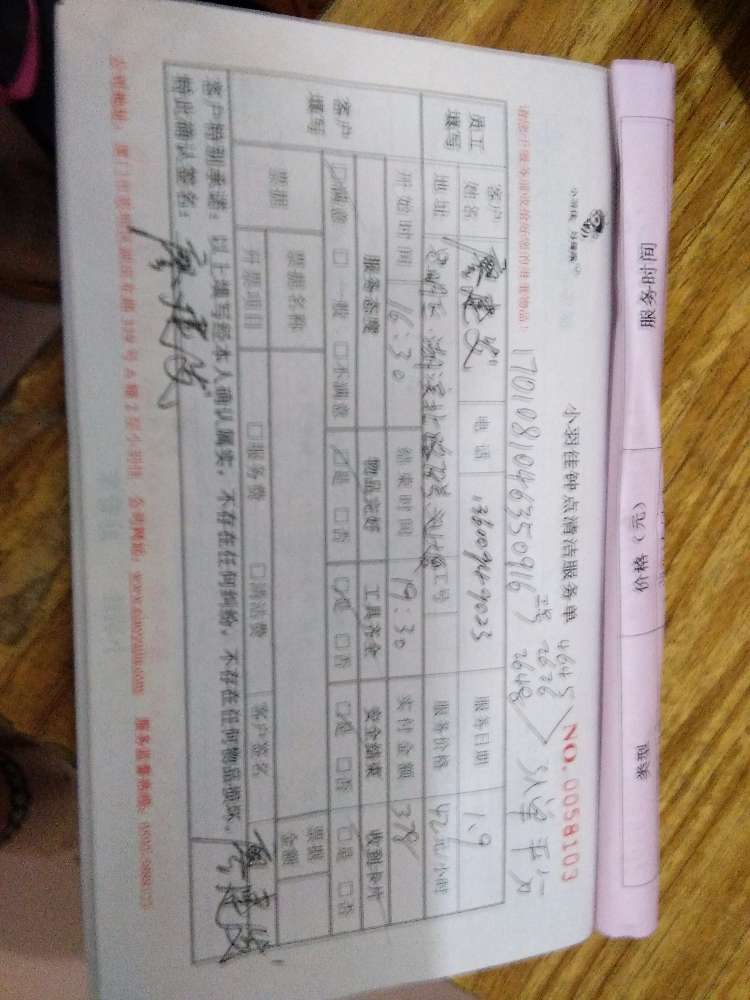 服务时间 价格（元） 类型
小羽佳钟点清洁服务单
NO. 0058103
17010810463509167
4645
2626
2648
请您于服务前收拾好您的贵重物品！
员工填写 客户姓名 廖建发 电话 13600949023 服务日期 1.9
地址 工号 服务价格 42元/小时
客户填写 开始时间 16:30 结束时间 19:30 实付金额 378
服务态度 物品完好 工具齐全 安全结束 收到卡片
☑满意 □一般 □不满意 ☑是 □否 ☑是 □否 ☑是 □否 □是 □否
票据 票据名称 票据金额
开票项目 □服务费 □清洁费 客户签名 廖建发
客户特别承诺：以上填写经本人确认属实，不存在任何纠纷，不存在任何物品损坏，
特此确认签名： 廖建发